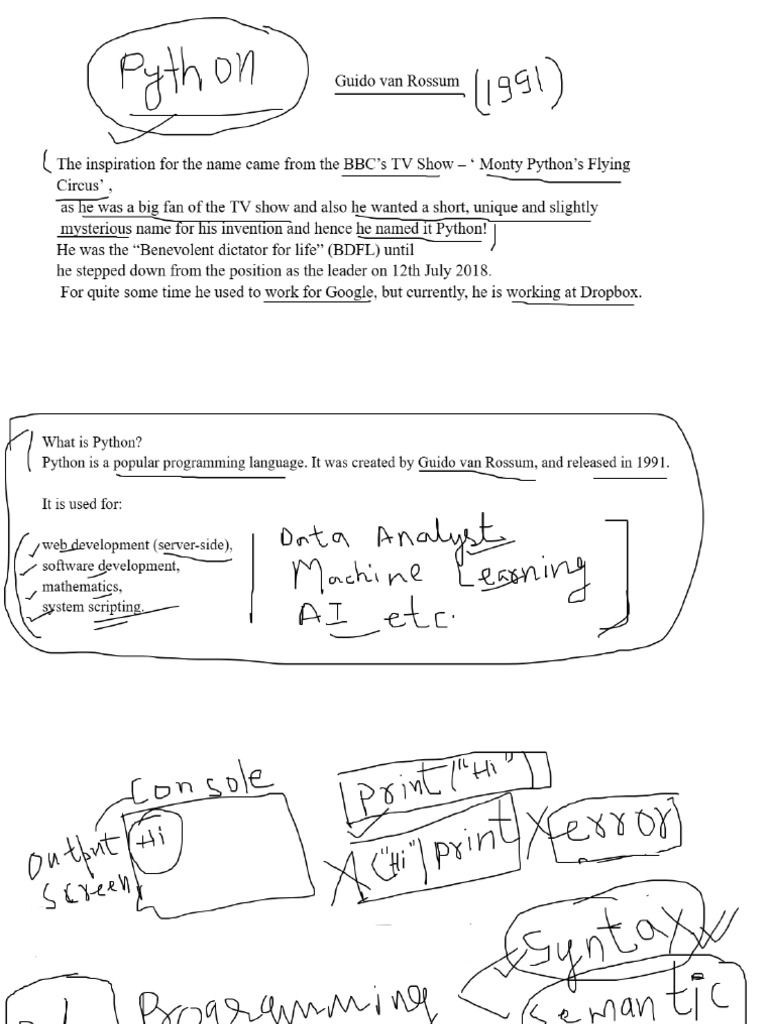 Python
Guido van Rossum (1991)
The inspiration for the name came from the BBC's TV Show – ‘ Monty Python's Flying
Circus’ ,
as he was a big fan of the TV show and also he wanted a short, unique and slightly
mysterious name for his invention and hence he named it Python!
He was the “Benevolent dictator for life” (BDFL) until
he stepped down from the position as the leader on 12th July 2018.
For quite some time he used to work for Google, but currently, he is working at Dropbox.
What is Python?
Python is a popular programming language. It was created by Guido van Rossum, and released in 1991.
It is used for:
web development (server-side),
software development,
mathematics,
system scripting.
Data Analyst
Machine Learning
AI etc.
Console
Output
Screen
Hi
print("Hi")
("Hi") print
error
Syntax
Programming
Semantic